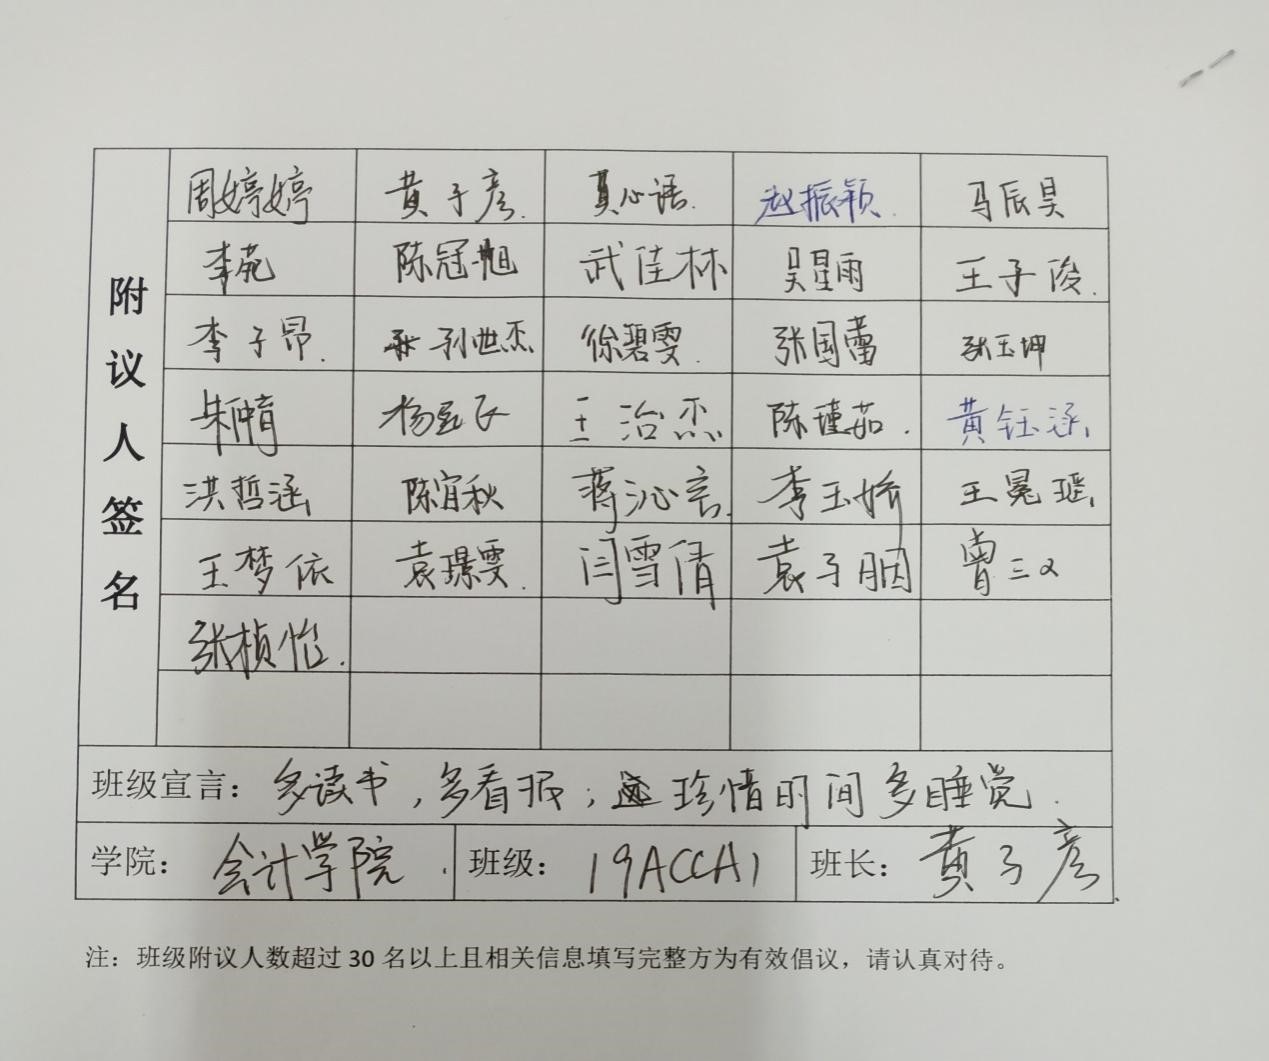 附议人签名
周婷婷 黄子彦. 心语. 赵振颖. 马辰昊
李苑 陈冠旭 武佳林 吴星雨 王子俊.
李子昂. 孙世杰 徐碧雯. 张国蕾 张玉坤
朱仲育 杨 王治杰 陈瑾茹. 黄钰涵
洪哲涵 陈宜秋 蒋沁言. 李玉娇 王冕瑶
王梦依 袁璟雯. 闫雪倩 袁子胭 曾三义
张桢怡.
班级宣言：多读书，多看报；珍惜时间多睡觉.
学院：会计学院. 班级：19ACCA1 班长：黄子彦.
注：班级附议人数超过 30 名以上且相关信息填写完整方为有效倡议，请认真对待。